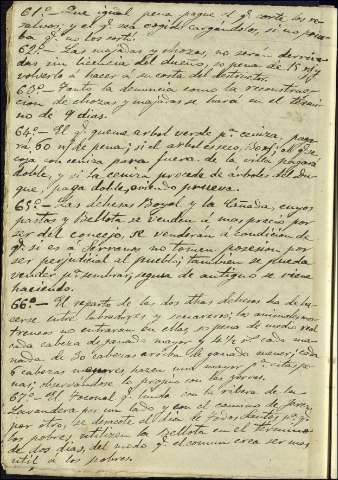 61º.- Que igual pena pague el q. corte los re-
, y el q. sea cogido cargandolos, si no
ba q. no los cortó.
62º.- Las majadas y chozas, no serán derriva-
das sin licencia del dueño, so pena de 15 rs y
volverlo á hacer á su costa del destructor.
63º.- Tanto la denuncia como la reconstruc-
cion de chozas y majadas se hará en el térmi-
no de 9 dias.
64º.- El q. queme arbol verde pª ceniza, paga-
rá 60 rs de pena; si el arbol és seco,
coja con ceniza para fuera de la villa pagará
doble, y si la ceniza procede de árboles del Du-
que, paga doble, prueva.
65º.- Las dehesas Boyal y la Cañada, cuyos
pastos y Bellota se venden á mas precio por
ser del concejo, se venderán á condicion de
q. si es á serranos no tomen posesion por
ser perjuicial al pueblo; tambien se pueda
vender pª sembrar, segun de antiguo se viene
haciendo.
66º.- El reparto de las dos dhas dehesas ha de ha-
cerse entre labradores y ; los animales
no entraran en ellas so pena de medio real
cada cabeza de ganado mayor y 4½ rs cada ma-
nada de 30 cabezas arriba de ganado menor; cada
6 cabezas menores hacen una mayor pª estas pe-
nas; observandose lo propio con las yervas.
67º.- El q. linda con la rivera de la
Lavandera por un lado y con el camino de
por otro, se el dia de Todos Santos pª q.
los pobres utilicen la Bellota en el término
de dos dias, del modo q. el comun crea ser mas
util á los pobres.